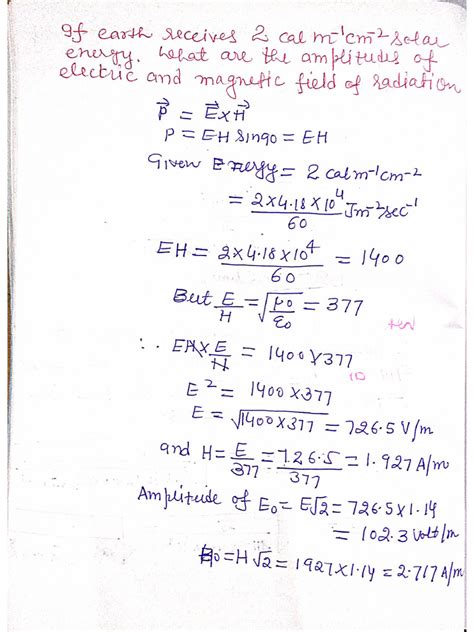 If earth receives 2 cal m⁻¹cm⁻² solar
energy. What are the amplitudes of
electric and magnetic field of radiation
P⃗ = E⃗xH⃗
P = EH Sin90 = EH
Given Energy = 2 cal m⁻¹cm⁻²
= 2x4.18 X10⁴ / 60 Jm⁻²sec⁻¹
EH = 2x4.18x10⁴ / 60 = 1400
But E/H = √μ0/ε0 = 377
∴ EHX E/H = 1400X377
E² = 1400X377
E = √1400X377 = 726.5 V/m
and H = E/377 = 726.5/377 = 1.927 A/m
Amplitude of E₀ = E√2 = 726.5X1.14
= 102.3 volt/m
H₀ = H√2 = 1927X1.14 = 2.717 A/m